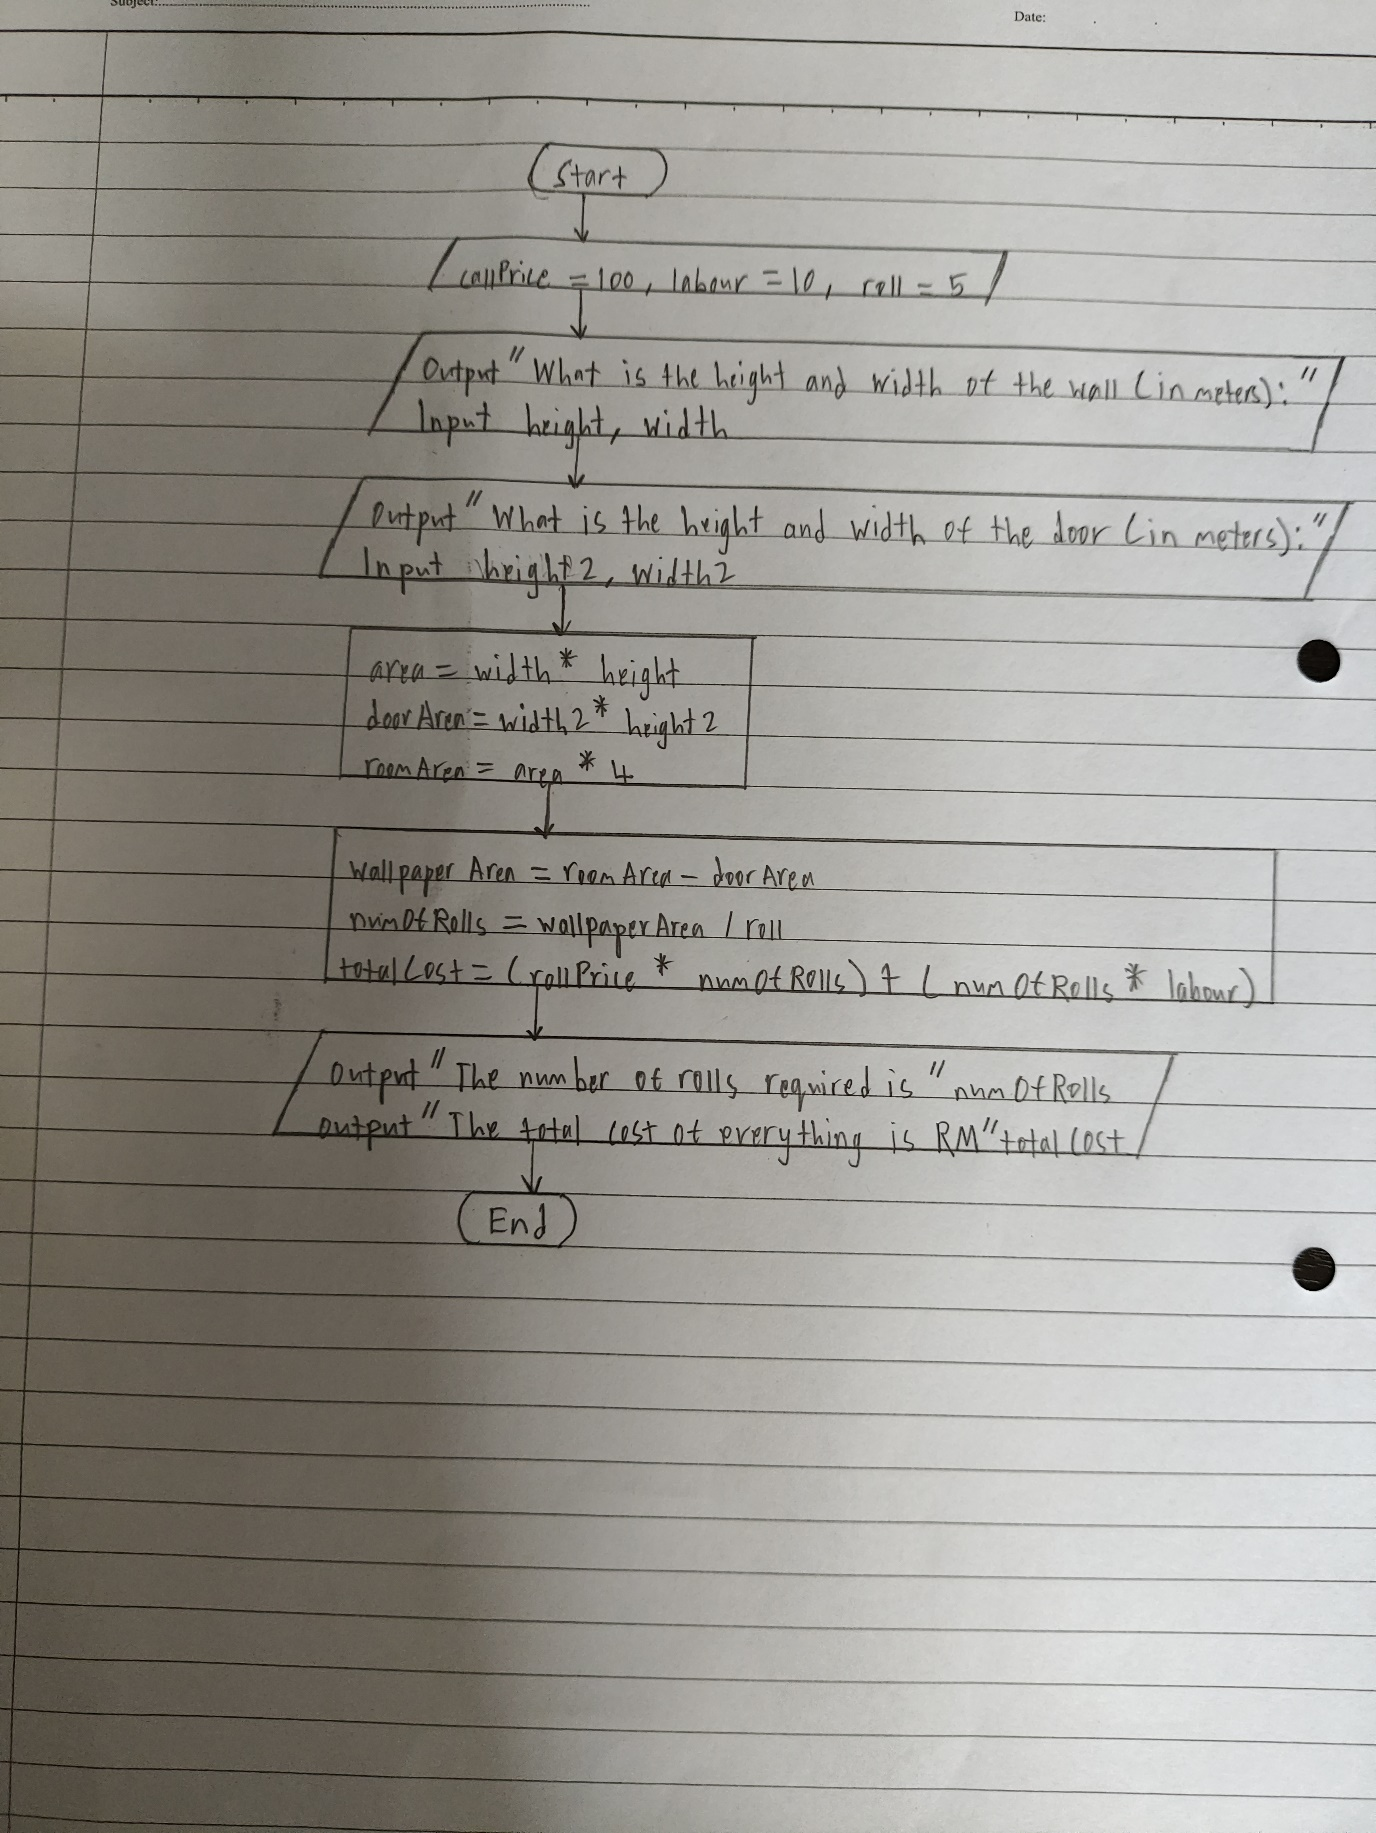 Subject:
Date:
Start
rollPrice = 100, labour = 10, roll = 5
Output "What is the height and width of the wall (in meters):"
Input height, width
Output "What is the height and width of the door (in meters):"
Input height2, width2
area = width * height
doorArea = width2 * height2
roomArea = area * 4
wallpaper Area = roomArea - doorArea
numOfRolls = wallpaperArea / roll
totalCost = (rollPrice * numOfRolls) + (numOfRolls * labour)
Output "The number of rolls required is" numOfRolls
output "The total cost of everything is RM" totalCost
End